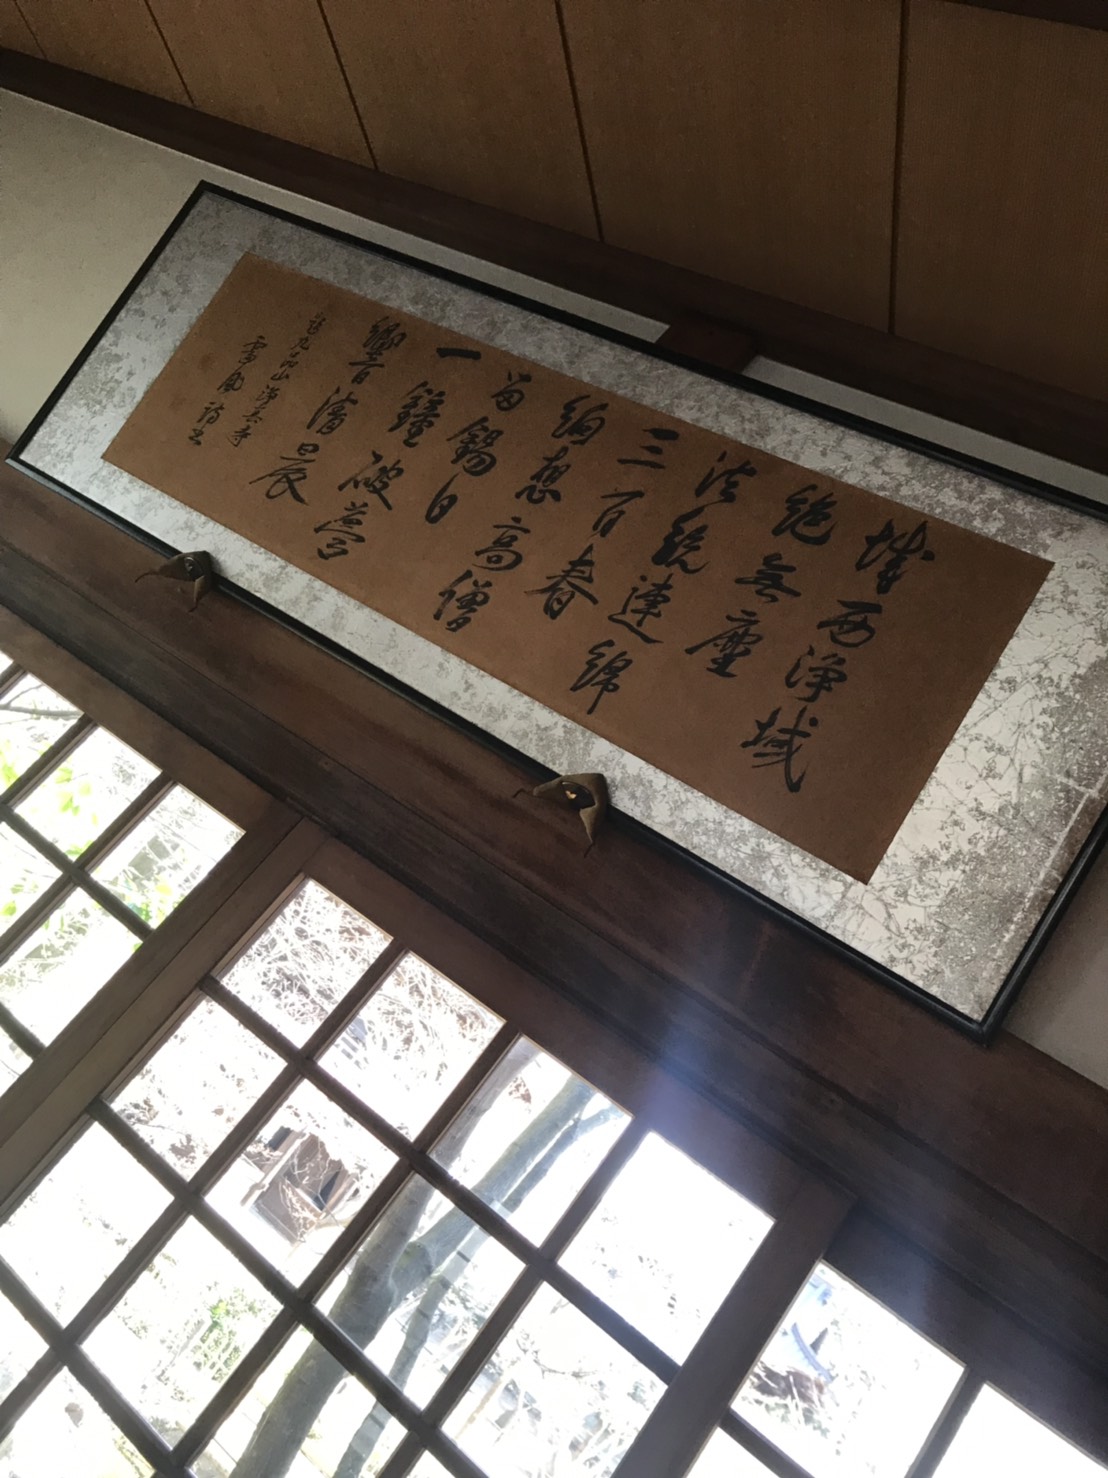 城西浄域
絶無塵
法統連綿
三百春
緬想高僧
留錫日
一鐘破夢
響清晨
訪九品山浄真寺